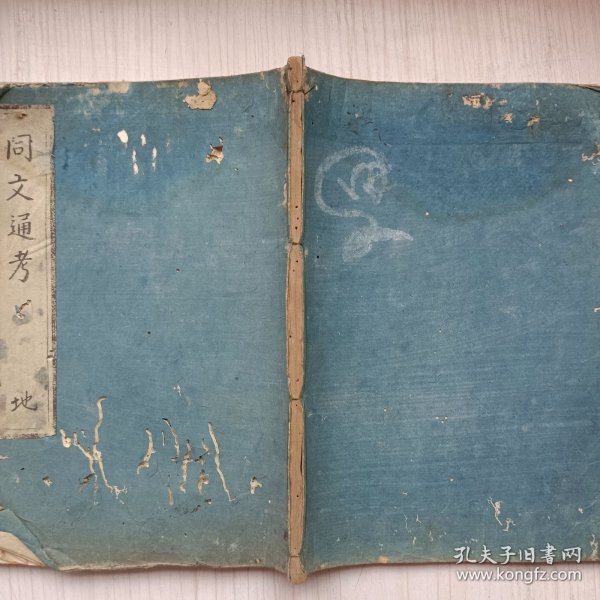 同文通考
地
孔夫子旧書网
www.kongfz.com